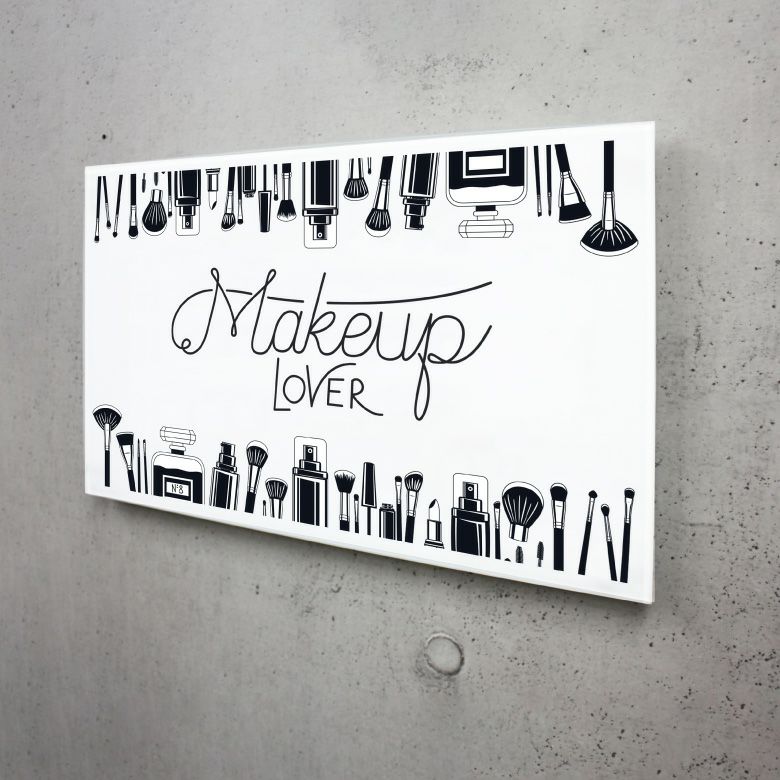 Makeup
LOVER
N°8